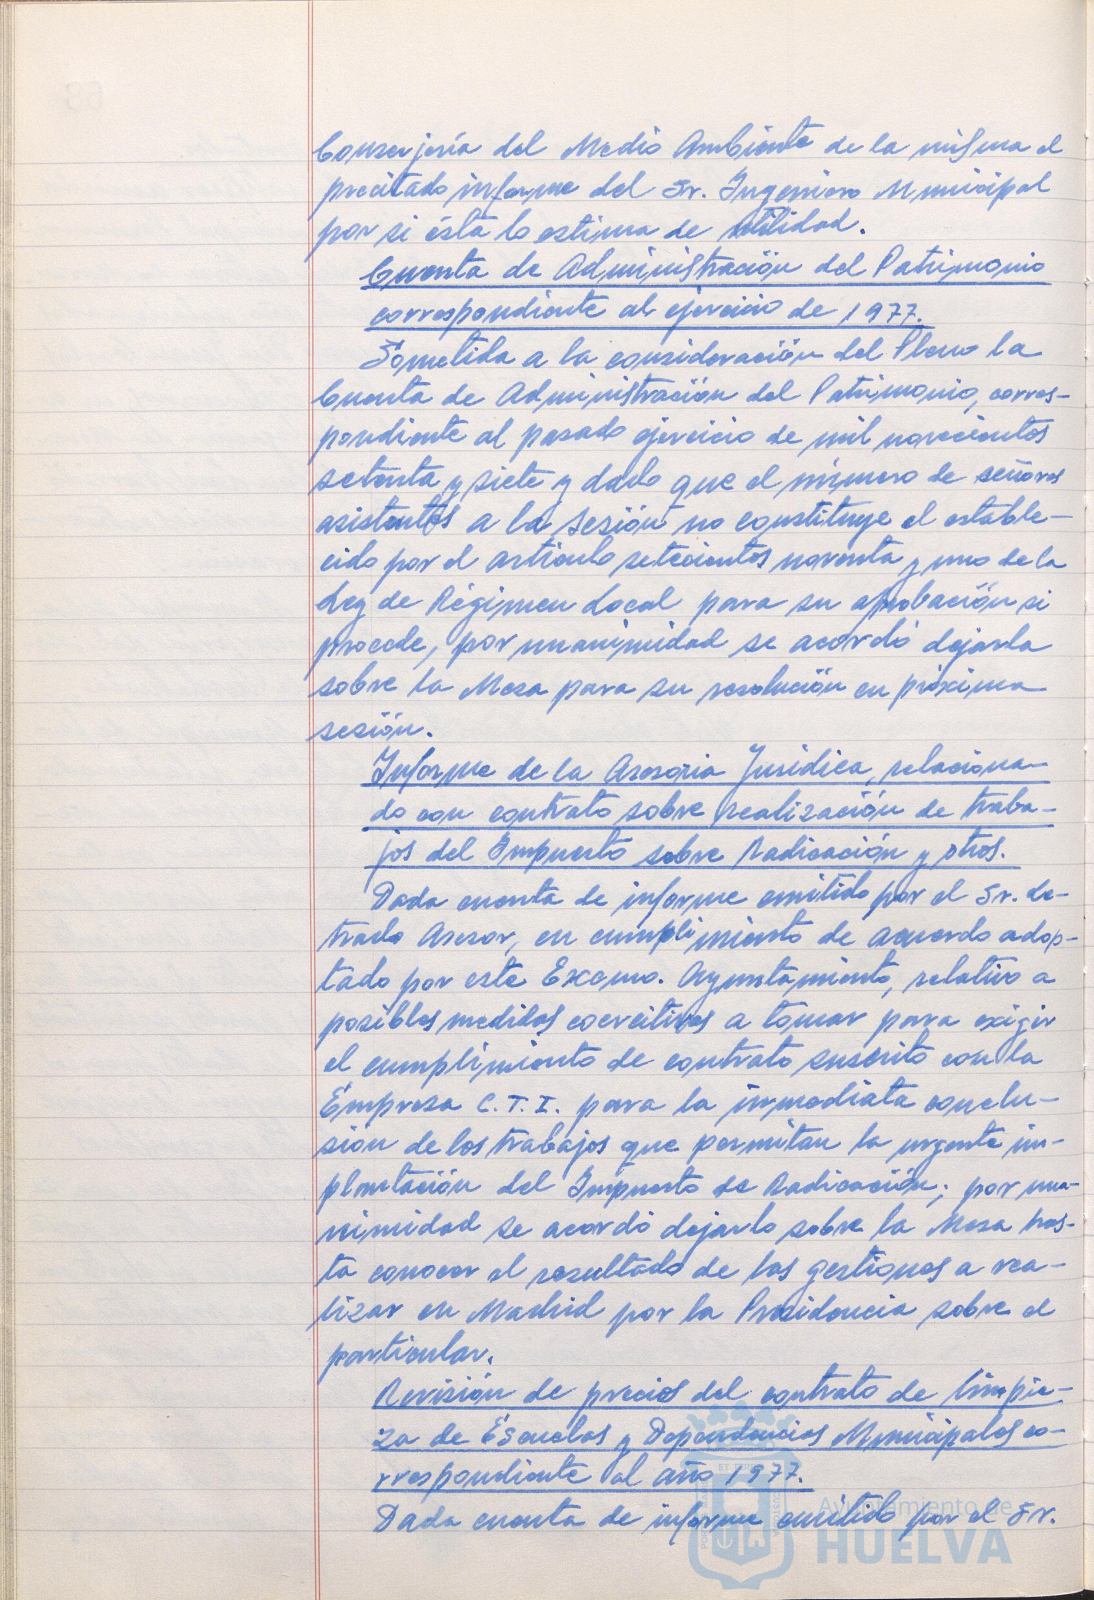 Conserjería del Medio Ambiente de la misma el
precitado informe del Sr. Ingeniero Municipal
por si ésta lo estima de utilidad.
Cuenta de Administración del Patrimonio
correspondiente al ejercicio de 1977.
Sometida a la consideración del Pleno la
Cuenta de Administración del Patrimonio, corres-
pondiente al pasado ejercicio de mil novecientos
setenta y siete y dado que el número de señores
asistentes a la sesión no constituye el estable-
cido por el artículo setecientos noventa y uno de la
Ley de Régimen Local para su aprobación si
procede, por unanimidad se acordó dejarla
sobre la Mesa para su resolución en próxima
sesión.
Informe de la Asesoria Jurídica, relaciona-
do con contrato sobre realización de traba-
jos del Impuesto sobre Radicación y otros.
Dada cuenta de informe emitido por el Sr. Le-
trado Asesor, en cumplimiento de acuerdo adop-
tado por este Excmo. Ayuntamiento, relativo a
posibles medidas coercitivas a tomar para exigir
el cumplimiento de contrato suscrito con la
Empresa C.T.I. para la inmediata conclu-
sión de los trabajos que permitan la urgente im-
plantación del Impuesto de Radicación; por una-
nimidad se acordó dejarlo sobre la Mesa has-
ta conocer el resultado de las gestiones a rea-
lizar en Madrid por la Presidencia sobre el
particular.
Revisión de precios del contrato de limpie-
za de Escuelas y Dependencias Municipales co-
rrespondiente al año 1977.
Dada cuenta de informe emitido por el Sr.
Ayuntamiento de
HUELVA